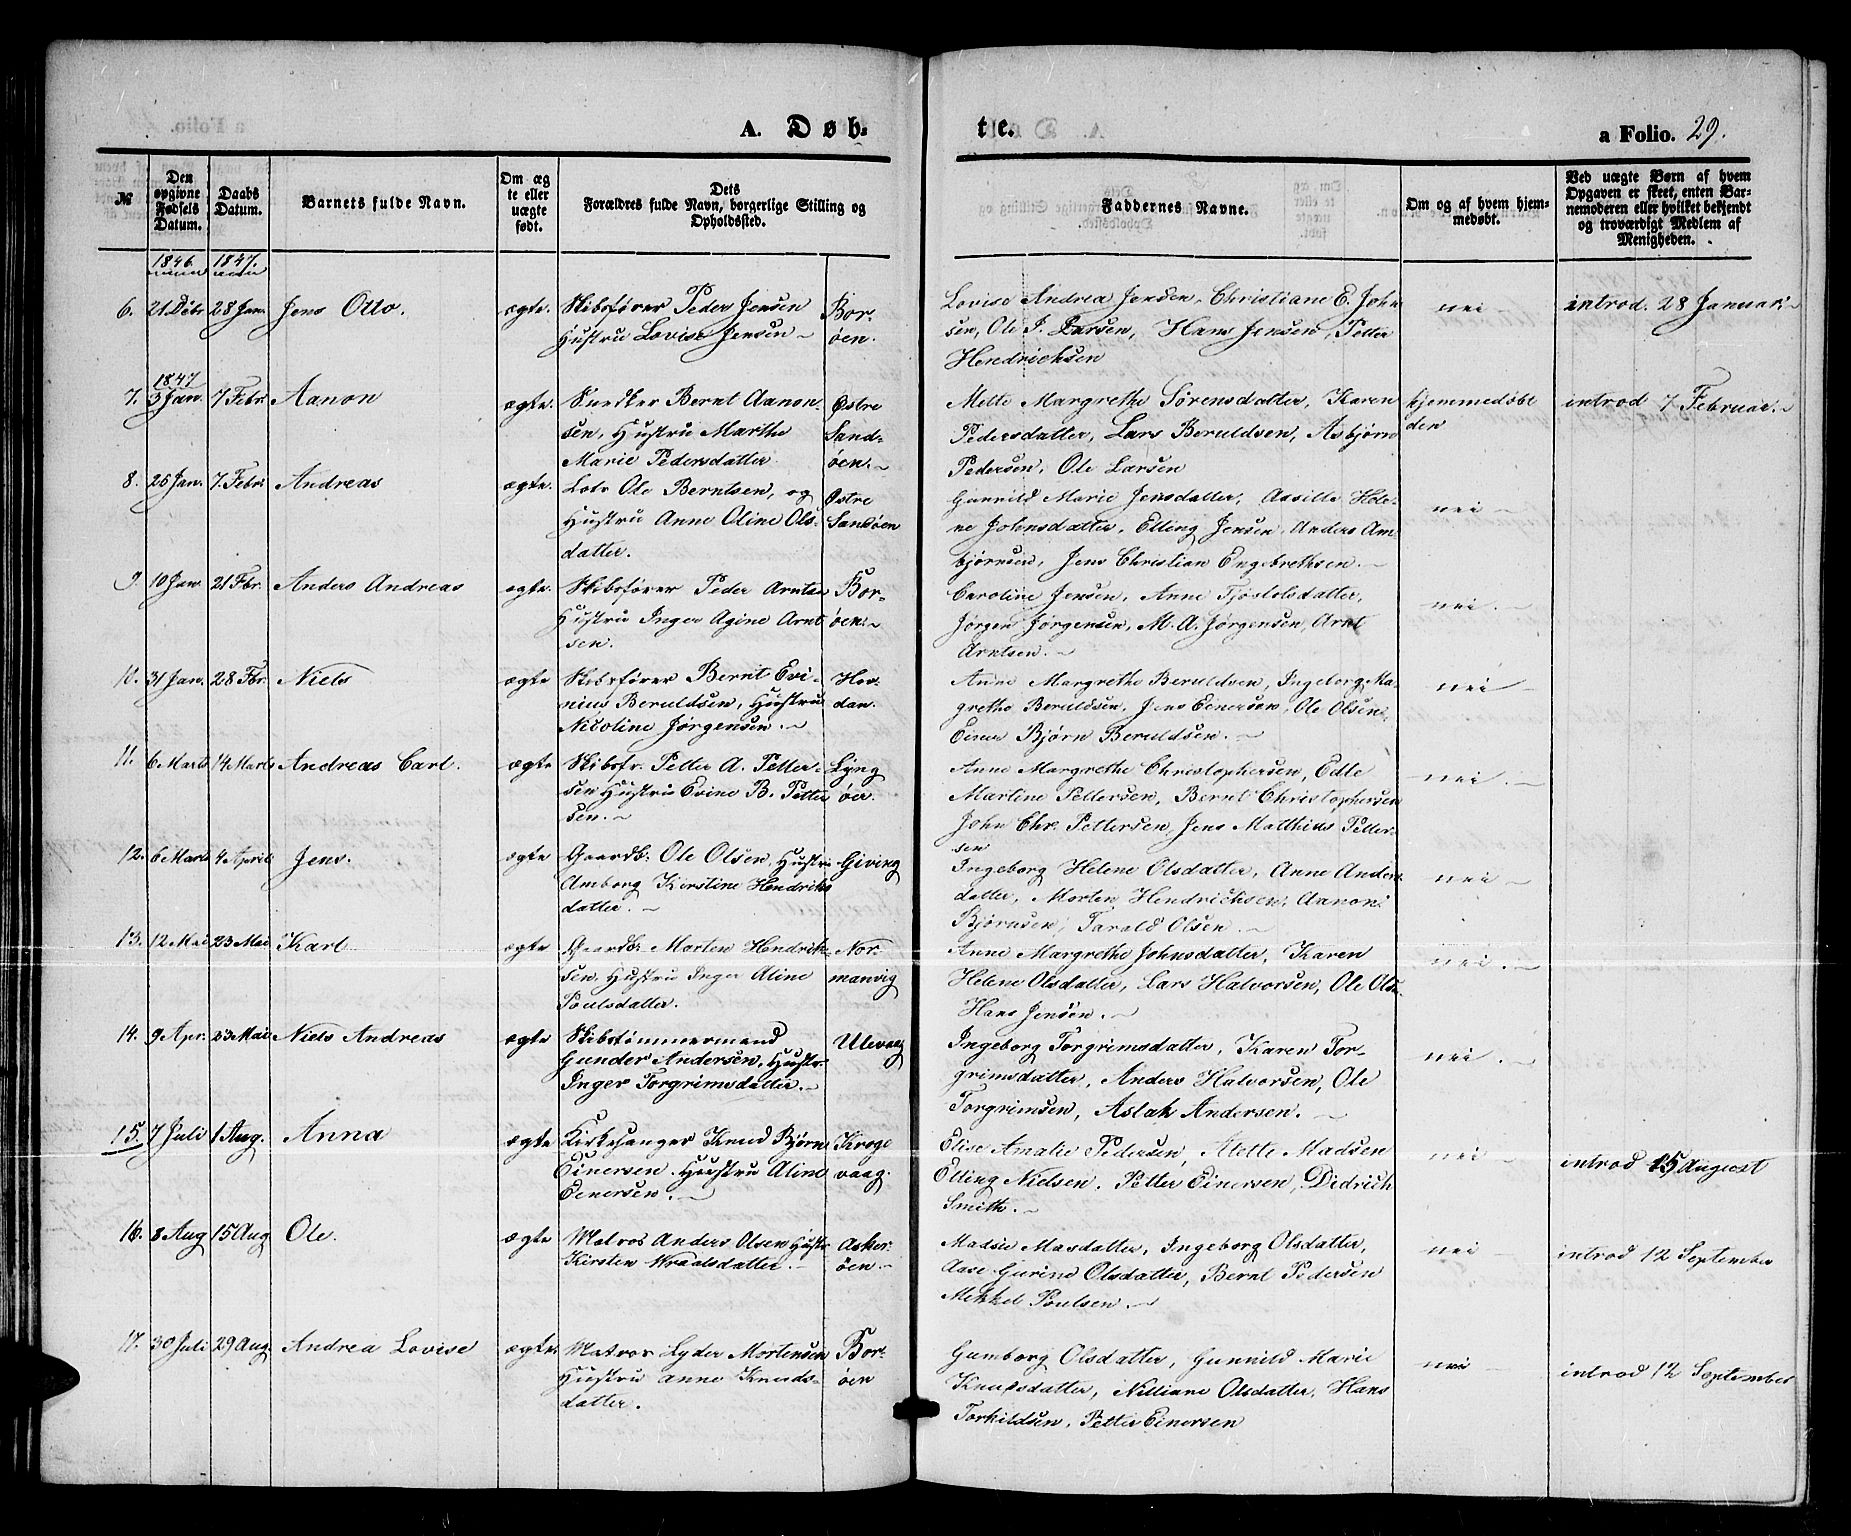 A. Døb-
te.
a Folio. 29.
№
Den opgivne Fødsels Datum.
Daabs Datum.
Barnets fulde Navn.
Om ægte eller uægte født.
Dets Forældres fulde Navn, borgerlige Stilling og Opholdssted.
Faddernes Navne.
Om og af hvem hjemmedøbt.
Ved uægte Børn af hvem Opgaven er skeet, enten Barnemoderen eller hvilket bekjendt og troværdigt Medlem af Menigheden.
1846 1847.
6. 21 Debr 28 Jan. Jens Otto. ægte. Skibsfører Peder Jensen
Hustru Lovise Jensen
Bor-
øen.
Lovise Andrea Jensen, Christiane E. John
sen, Ole J. Larsen, Hans Jensen, Petter
Hendrichsen
nei
introd. 28 Januar
1847
7. 3 Jan. 7 Febr. Aanon ægte. Snedker Bernt Aanon-
sen, Hustru Marthe
Marie Pedersdatter
Østre
Sand-
øen.
Mette Margrethe Sørensdatter, Karen
Pedersdatter, Lars Beruldsen, Asbjørn
Pedersen, Ole Larsen
hjemmedøbt
den
introd 7 Februar.
8. 25 Jan. 7. Febr Andreas ægte. Lots Ole Berntsen, og
Hustru Anne Oline Ols-
datter.
Østre
Sandøen
Gunnild Marie Jensdatter, Aasille Hele-
ne Johnsdatter, Elling Jensen, Anders Am-
bjørnsen, Jens Christian Engebrethsen.
nei
9. 10 Jan 21 Fbr. Anders Andreas ægte. Skibsfører Peder Arntsen
Hustru Inger Agine Arnt
sen.
Bor-
øen.
Caroline Jensen, Anne Tjøstelsdatter,
Jørgen Jørgensen, M. A. Jørgensen, Arnt
Arntsen.
nei.
10. 31 Jan. 28 Fbr. Niels ægte Skibsfører Bernt Evi-
nius Beruldsen, Hustru
Nicoline Jørgensen.
Hov-
dan.
Anne Margrethe Beruldsen, Ingeborg Ma-
grethe Beruldsen, Jens Eenersen, Ole Olsen,
Einer Bjørn Beruldsen.
nei
11. 6 Marts 14 Marts Andreas Carl. ægte Skibsfr. Petter A. Petter-
sen Hustru Evine B. Petter
sen.
Lyng
øer.
Anne Margrethe Christophersen, Edle
Martine Pettersen, Bernt Christophersen
John Chr. Pettersen, Jens Matthias Petter-
sen
nei.
12. 6 Marts 4 April Jens. ægte Gaardb. Ole Olsen, Hustru
Amborg Kirstine Hendriks
datter.
Giving
Ingeborg Helene Olsdatter, Anne Anders
datter, Morten Hendrichsen, Aanon
Bjørnsen, Tarald Olsen.
nei
13. 12 Mai 23 Mai Karl ægte Gaardbr Morten Hendrik-
sen, Hustru Inger Aline
Poulsdatter.
Nor-
manvig
Anne Margrethe Johnsdatter, Karen
Helene Olsdatter, Lars Halvorsen, Ole Ols-
Hans Jensen.
nei.
14. 9 Apr. 23 Mai Niels Andreas ægte Skibstømmermand
Gunder Andersen, Hustr.
Inger Torgrimsdatter.
Ulevaag
Ingeborg Torgrimsdatter, Karen Tor-
grimsdatter, Anders Halvorsen, Ole
Torgrimsen, Aslak Andersen.
nei.
15. 7 Juli 1 Aug. Anna ægte Kirkesanger Knud Bjørn
Einersen. Hustru Aline
Eenersen.
Kroge
vaag.
Elise Amalie Pedersen, Mette Madsen
Elling Nielsen, Petter Einersen, Didrich
Smith.
nei
introd 15 August
16. 8 Aug 15 Aug Ole. ægte Matros Anders Olsen Hustr
Kirsten Wraalsdatter.
Asker-
øen.
Madsie Masdatter, Ingeborg Olsdatter,
Aase Gurine Olsdatter, Bernt Pedersen
Mekkel Poulsen.
nei
introd 12 September
17. 30 Juli 29 Aug. Andrea Lovise ægte. Matros Lyder Mortensen
Hustru Anne Knuds-
datter.
Bor-
øen
Gumborg Olsdatter, Gunnild Marie
Knudsdatter, Nilliane Olsdatter, Hans
Torkildsen, Petter Einersen
nei
introd 12 September